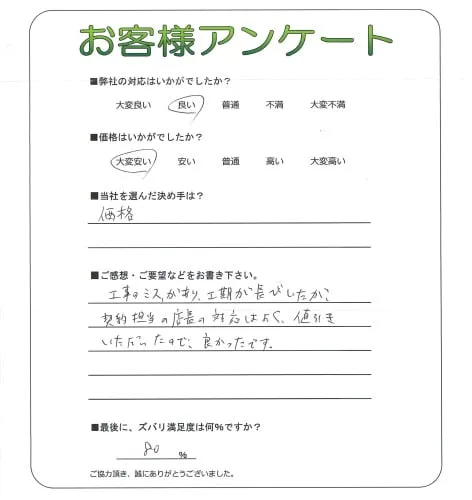 お客様アンケート
■弊社の対応はいかがでしたか?
大変良い 良い 普通 不満 大変不満
■価格はいかがでしたか?
大変安い 安い 普通 高い 大変高い
■当社を選んだ決め手は?
価格
■ご感想・ご要望などをお書き下さい。
工事のミスがあり、工期が長びしたが、
契約担当の店長の対応はよく、値引き
いただいたので、良かったです。
■最後に、ズバリ満足度は何%ですか?
80 %
ご協力頂き、誠にありがとうございました。